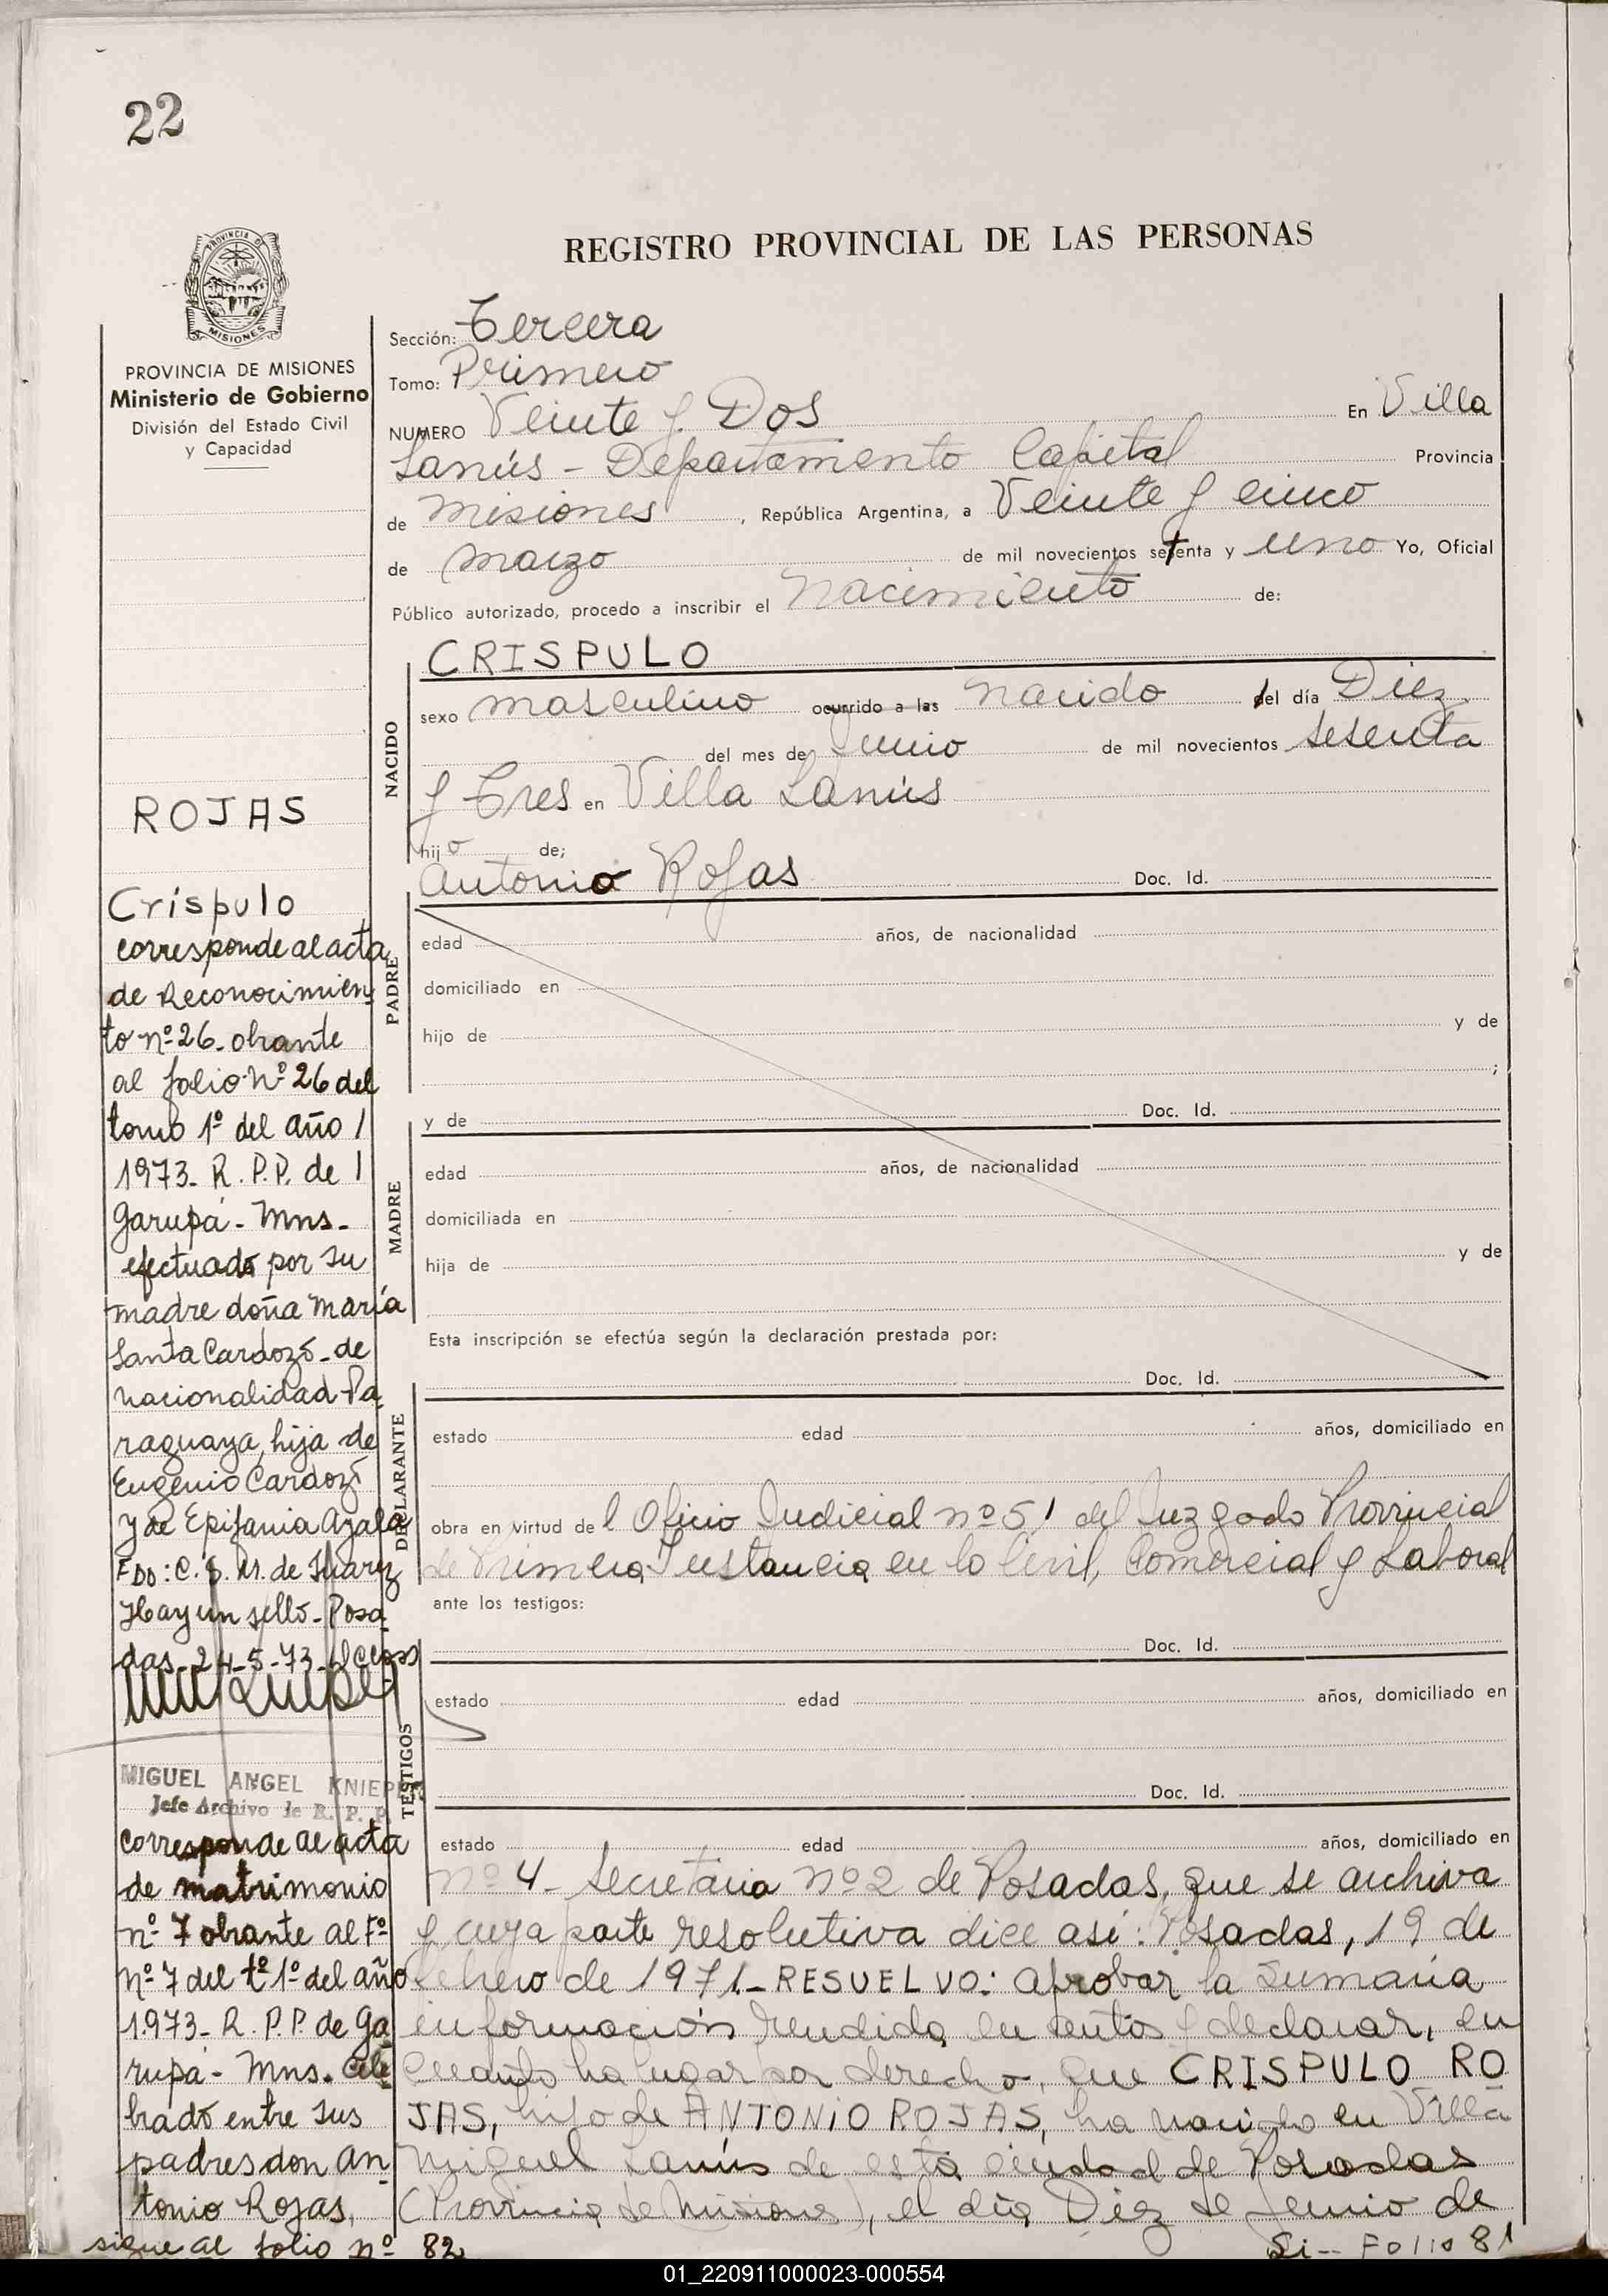 22
REGISTRO PROVINCIAL DE LAS PERSONAS
PROVINCIA DE MISIONES
Ministerio de Gobierno
División del Estado Civil
y Capacidad
Sección: Tercera
Tomo: Primero
NUMERO Veinte y Dos En Villa
Lanús - Departamento Capital Provincia
de Misiones, República Argentina, a Veinte y cinco
de Marzo de mil novecientos setenta y uno Yo, Oficial
Público autorizado, procedo a inscribir el Nacimiento de:
NACIDO
CRISPULO
sexo masculino ocurrido a las nacido el día Diez
del mes de Junio de mil novecientos sesenta
y Tres en Villa Lanús
hijo de;
Antonio Rojas Doc. Id.
PADRE
edad años, de nacionalidad
domiciliado en
hijo de y de
;
y de Doc. Id.
MADRE
edad años, de nacionalidad
domiciliada en
hija de y de
Esta inscripción se efectúa según la declaración prestada por:
Doc. Id.
DECLARANTE
estado edad años, domiciliado en
obra en virtud del Oficio Judicial nº 51 del Juzgado Provincial
de Primera Instancia en lo Civil, Comercial y Laboral
ante los testigos:
Doc. Id.
TESTIGOS
estado edad años, domiciliado en
Doc. Id.
estado edad años, domiciliado en
nº 4 - Secretaria nº 2 de Posadas, que se archiva
y cuya parte resolutiva dice así: Posadas, 19 de
febrero de 1971.- RESUELVO: aprobar la sumaria
información rendida en autos y declarar, en
cuanto ha lugar por derecho, que CRISPULO RO
JAS, hijo de ANTONIO ROJAS, ha nacido en Villa
Miguel Lanús de esta ciudad de Posadas
(Provincia de Misiones), el día Diez de Junio de
Si-- Folio 81
ROJAS
Críspulo
corresponde al acta
de Reconocimien
to nº 26. obrante
al folio Nº 26 del
tomo 1º del año /
1973- R.P.P. de /
Garupá - Mns-
efectuado por su
madre doña María
Santa Cardozo - de
nacionalidad Pa
raguaya, hija de
Eugenio Cardozo
y de Epifania Ayala
FDO: C. S. M. de Juarez
Hay un sello - Posa
das 24-5-73
MIGUEL ANGEL KNIEPP
Jefe Archivo de R. P. P.
corresponde al acta
de matrimonio
nº 7 obrante al Fº
Nº 7 del tº 1º del año
1.973- R.P.P. de Ga
rupá - Mns. Cele
brado entre sus
padres don An
tonio Rojas,
sigue al folio nº 82
01_220911000023-000554